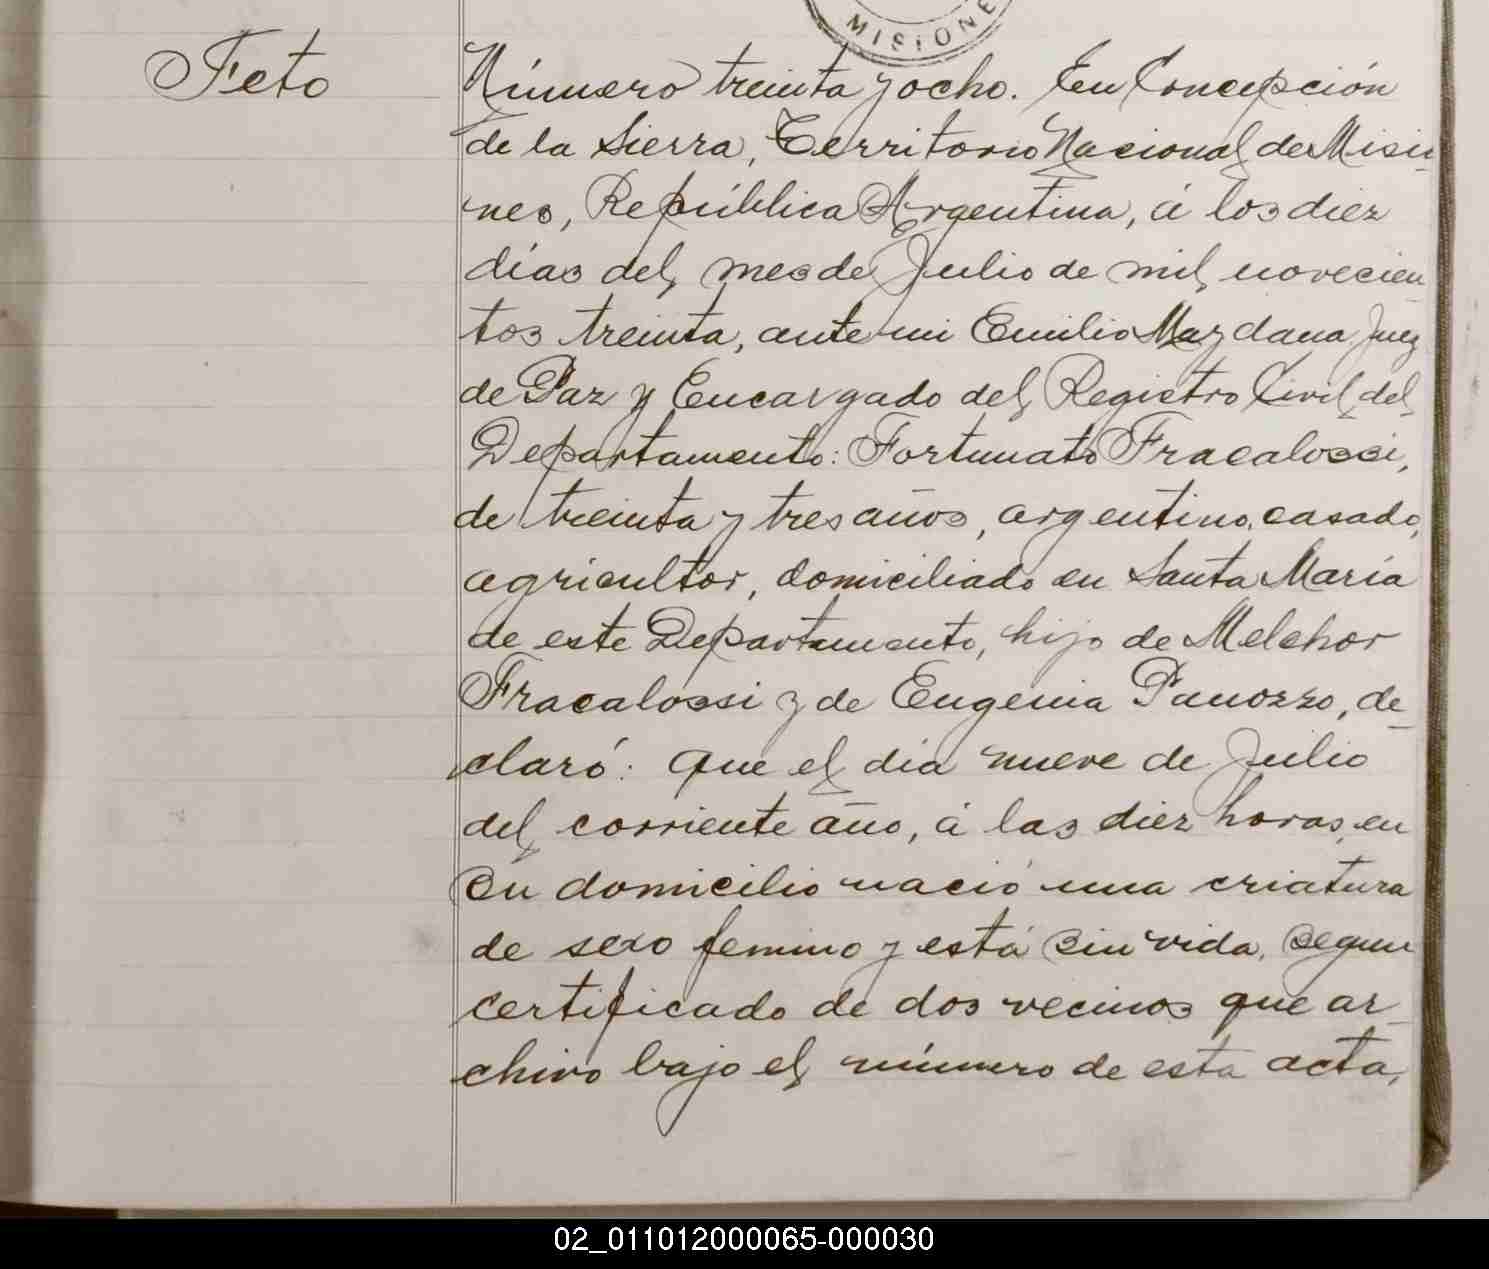 MISIONE
Feto
Número treinta y ocho. En Concepción
de la Sierra, Territorio Nacional de Misio
nes, República Argentina, á los diez
días del mes de Julio de mil novecien
tos treinta, ante mi Emilio Maydana Juez
de Paz y Encargado del Registro Civil del
Departamento: Fortunato Fracalossi,
de treinta y tres años, argentino, casado,
agricultor, domiciliado en Santa María
de este Departamento, hijo de Melchor
Fracalossi y de Eugenia Panozzo, de_
claró: que el día nueve de Julio
del corriente año, á las diez horas, en
su domicilio nació una criatura
de sexo femino y está sin vida, segun
certificado de dos vecinos que ar_
chivo bajo el número de esta acta,
02_011012000065-000030